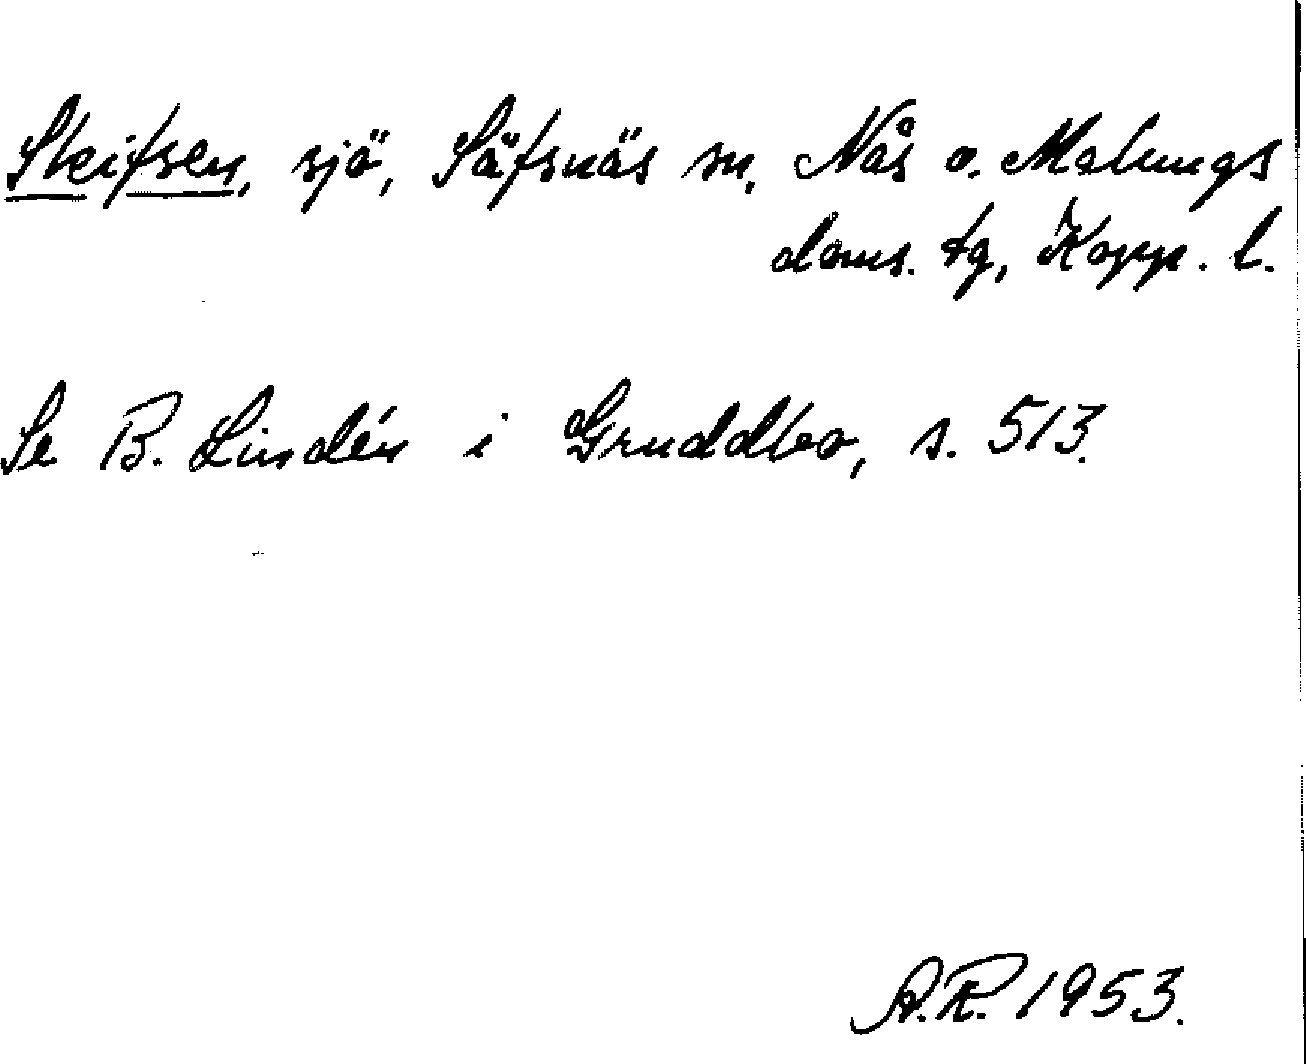 Skeifsen, sjö, Säfsnäs sn, Nås o. Malungs
doms. tg, Kopp. l.
Se B. Lindén i Gruddbo, s. 513.
A.R. 1953.